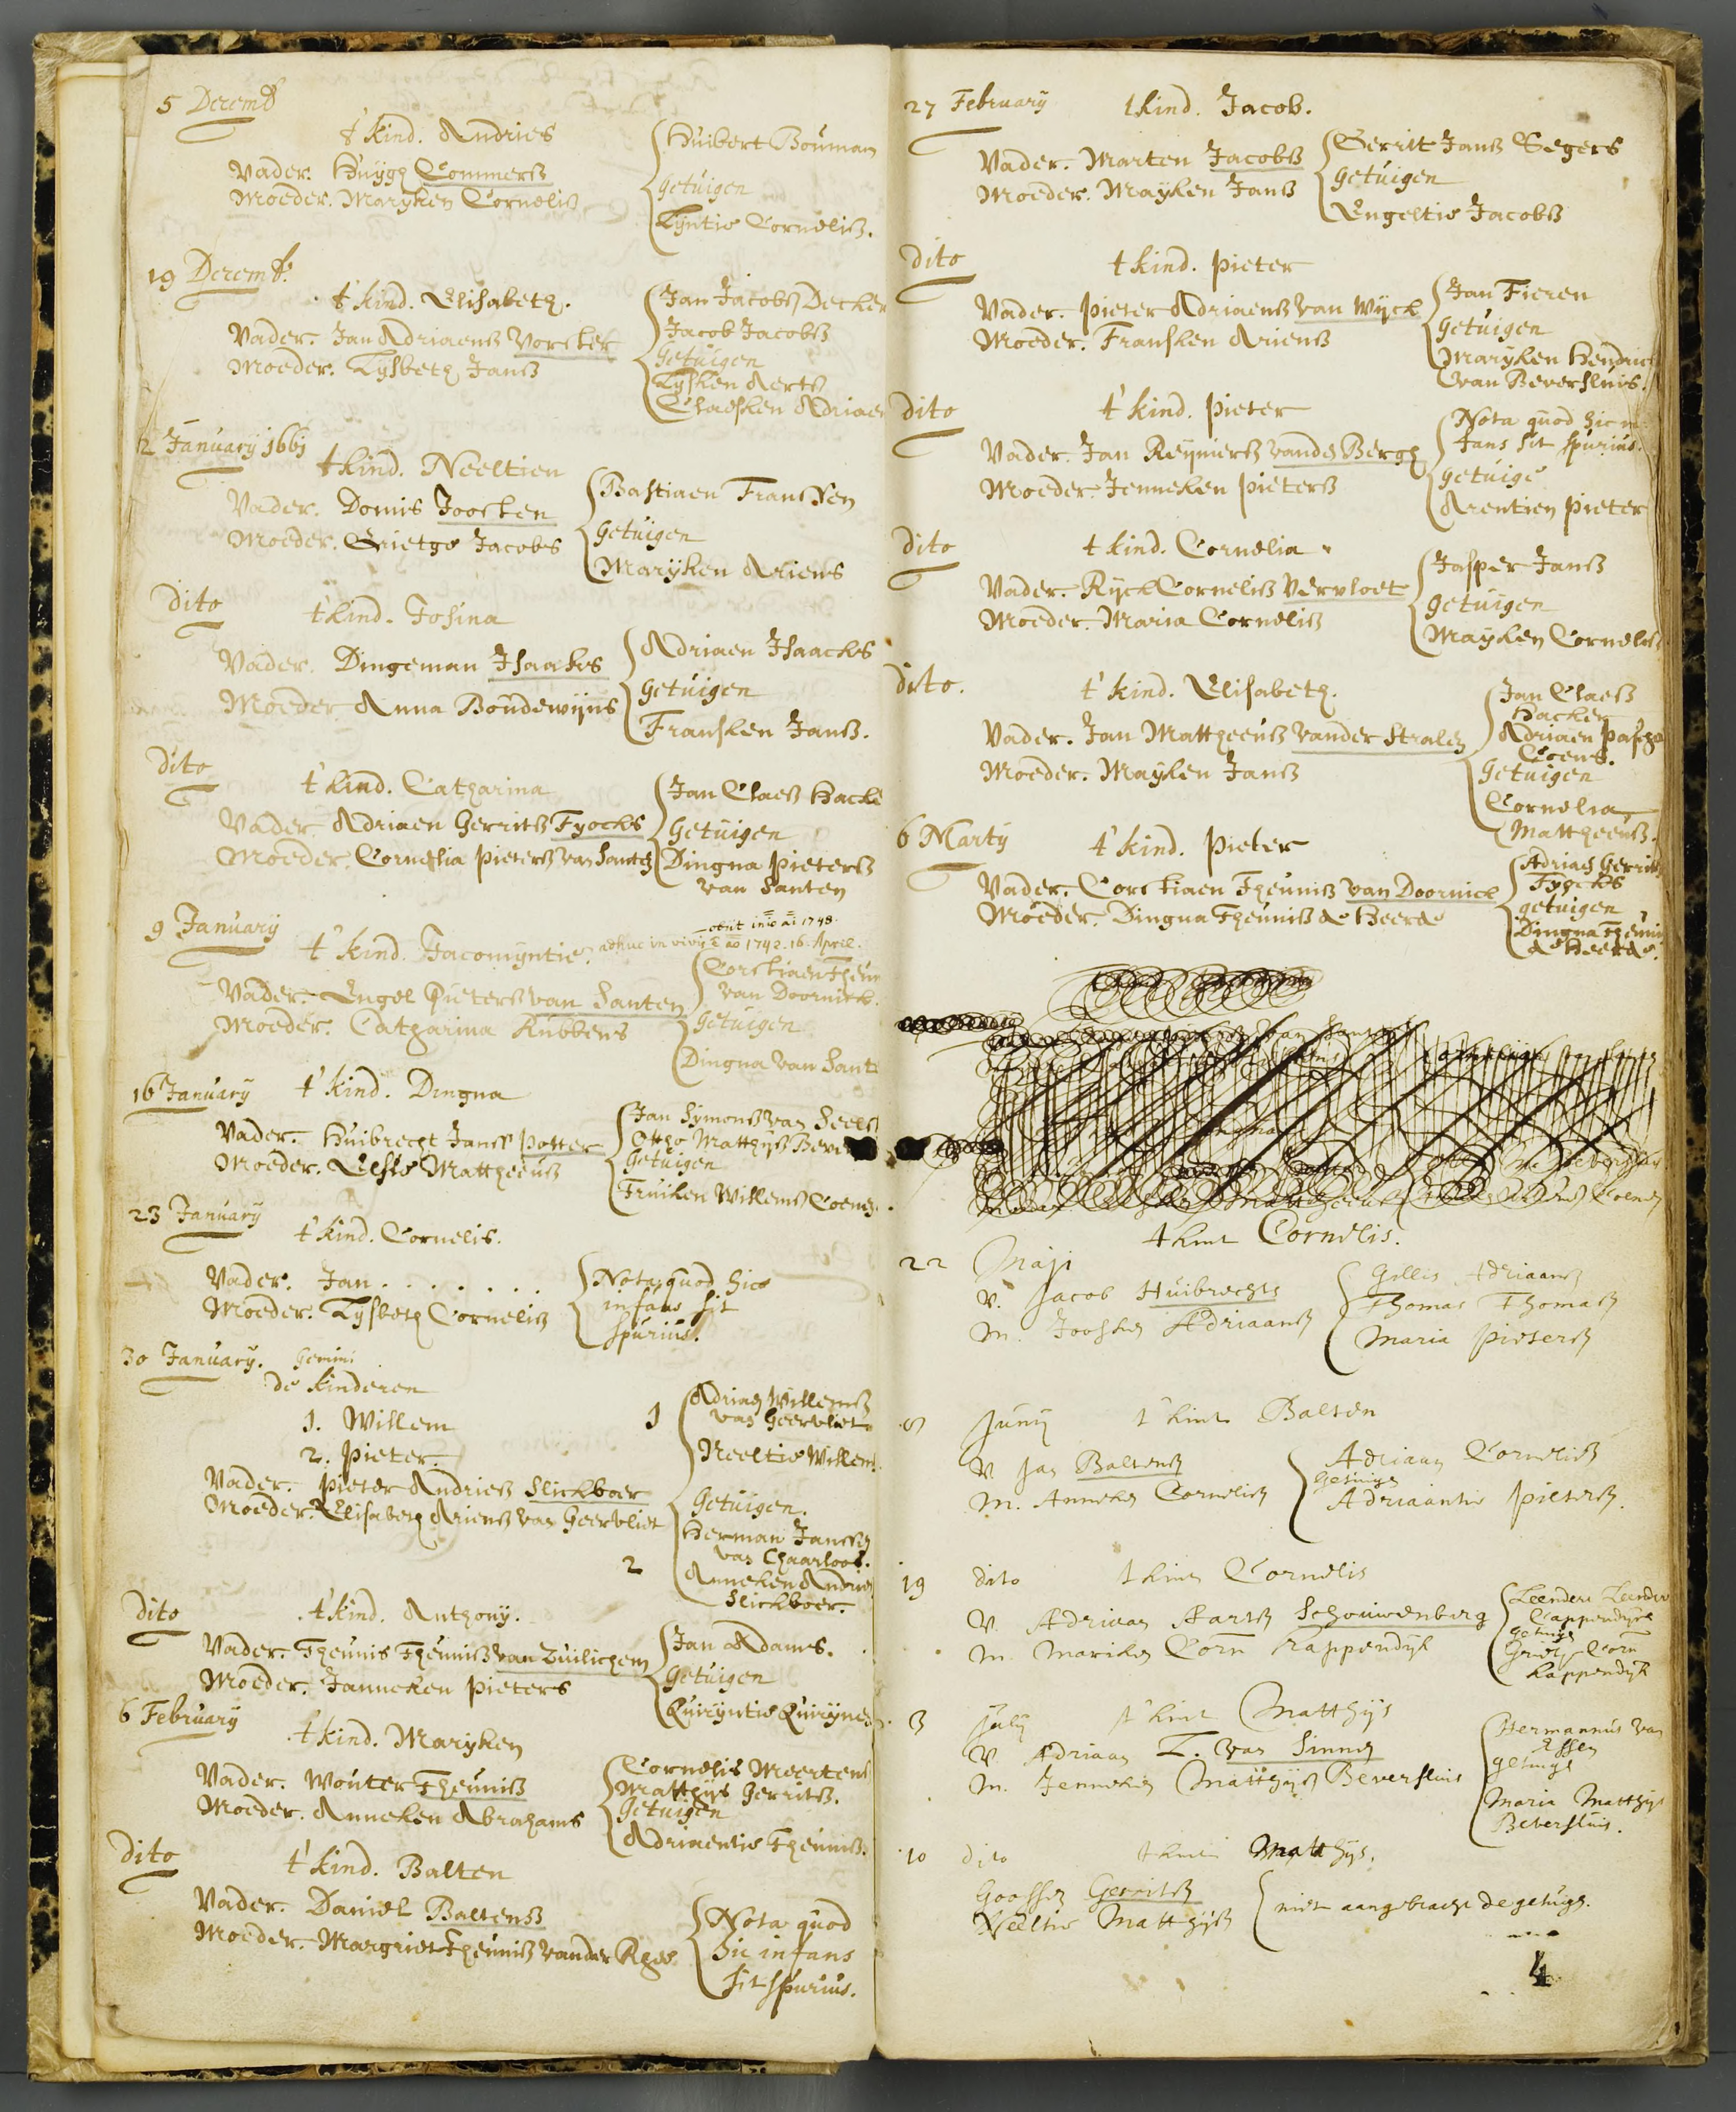 5 Decemb
t' kind. Andries
Vader. Huijgh Commersz
Moeder. Maryken Cornelisz
Huibert Bouman
Getuigen
Lijntie Cornelisz.
19 Decemb:
t' kind. Elisabeth.
Vader. Jan Adriaensz Vorster
Moeder. Lijsbeth Jansz
Jan Jacobsz Decker
Jacob Jacobsz
Getuigen
Lijsken Aertsz
Claesken Adriaen
2 January 1661
t kind. Neeltien
Vader. Domis Joosten
Moeder. Grietge Jacobs
Bastiaen Franssen
Getuigen
Marijken Ariens
dito
t' kind. Josina
Vader. Dingeman Isaacks
Moeder Anna Boudewijns
Adriaen Isaacks
Getuigen
Fransken Jansz.
dito
t' kind. Catharina
Vader Adriaen Gerritsz Fyocks
Moeder. Cornelia Pietersz van Santen
Jan Claesz Hacke
Getuigen
Dingna Pietersz
van Santen
9 January
t' kind. Jacomijntie.
obiit in ao 1748.
adhuc in vivis ao 1742. 16. April.
Vader. Engel Pietersz van Santen
Moeder. Catharina Rubbens
Corstiaen Theun
van Doornick.
Getuigen
Dingna van Sant
16 January
t' kind. Dingna
Vader. Huibrecht Janss Potter
Moeder. Elsie Mattheeusz
Jan Symonsz van Seels
Ottho Matthijsz Bever
Getuigen
Fruiken Willemsz Coenen.
23 January
t' kind. Cornelis.
Vader. Jan . . . . . .
Moeder. Lijsbeth Cornelisz
Nota quod hice
infans sit
spurius.
30 January. Gemini
de kinderen
1. Willem
2. Pieter.
Vader. Pieter Andriesz Slickboer
Moeder. Elisabeth Ariensz van Geervliet
1
Adriaen Willemsz
van Geervliet
Neeltie Willems
Getuigen.
2
Herman Janssen
van Chaarloos.
Anneken Andries
Slickboer.
dito
t' kind. Anthony.
Vader. Theunis Theunisz van Zuilichem
Moeder. Janneken Pieters
Jan Adams.
Getuigen
Quirijntie Quirijnes
6 February
t' kind. Maryken
Vader. Wouter Theunisz
Moeder. Anneken Abrahams
Cornelis Meertens
Matthijs Gerritsz.
Getuigen
Adriaentie Theunisz.
dito
t' kind. Balten
Vader. Daniel Baltensz
Moeder. Margriet Theunisz vander Rhee
Nota quod
hic infans
sit spurius.
27 February
t kind. Jacob.
Vader. Marten Jacobsz
Moeder. Mayken Jansz
Gerrit Jansz Segers
Getuigen
Engeltie Jacobsz
dito
t kind. Pieter
Vader. Pieter Adriaensz van Wijck
Moeder. Fransken Ariensz
Jan Fieren
Getuigen
Maryken Hendric
van Beversluis.
dito
t' kind. Pieter
Vader. Jan Reyniersz vanden Bergh
Moeder. Jenneken Pietersz
Nota quod hic in
fans sit spurius.
getuige
Arentien Pieter
dito
t kind. Cornelia
Vader. Ryck Cornelisz Vervloet
Moeder. Maria Cornelisz
Jasper Jansz
getuigen
Mayken Cornelisz
dito.
t' kind. Elisabeth.
Vader. Jan Mattheeusz vander Stralen
Moeder. Mayken Jansz
Jan Claesz
Hacken
Adriaen Pascha
Coens.
Getuigen
Cornelia
Mattheensz.
6 Marty
t' kind. Pieter
Vader. Corstiaen Theunisz van Doornick
Moeder. Dingna Theunisz de Heerde
Adriaen Gerritsz
Fyocks
getuigen
Dingna Theunis
de Heerde.
t kint Cornelis.
22 Maji
V. Jacob Huibrechts
M. Joosken Adriaansz
Gillis Adriaansz
Thomas Thomasz
Maria Pietersz
Junij t' kint Balten
V. Jan Baltensz
M. Anneken Cornelisz
Adriaan Cornelisz
Getuigen
Adriaantie Pietersz.
19 dito t kint Cornelis
V. Adriaan Aartsz Schouwenberg
M. Mariken Corn Kappendijk
Leendert Leenders
Cappendijck
getuigen
Grietje Corn
Kappendijk
3 July t' kint Matthijs
V. Adriaan T. van Sinnen
M. Jenneken Matthijsz Beversluis
Hermannus van
Essen
getuige
Maria Matthijs
Beversluis.
10 dito t kint Matthijs.
Goossen Gerritsz
Neeltie Matthijsz
niet aangebracht de getuigen.
4